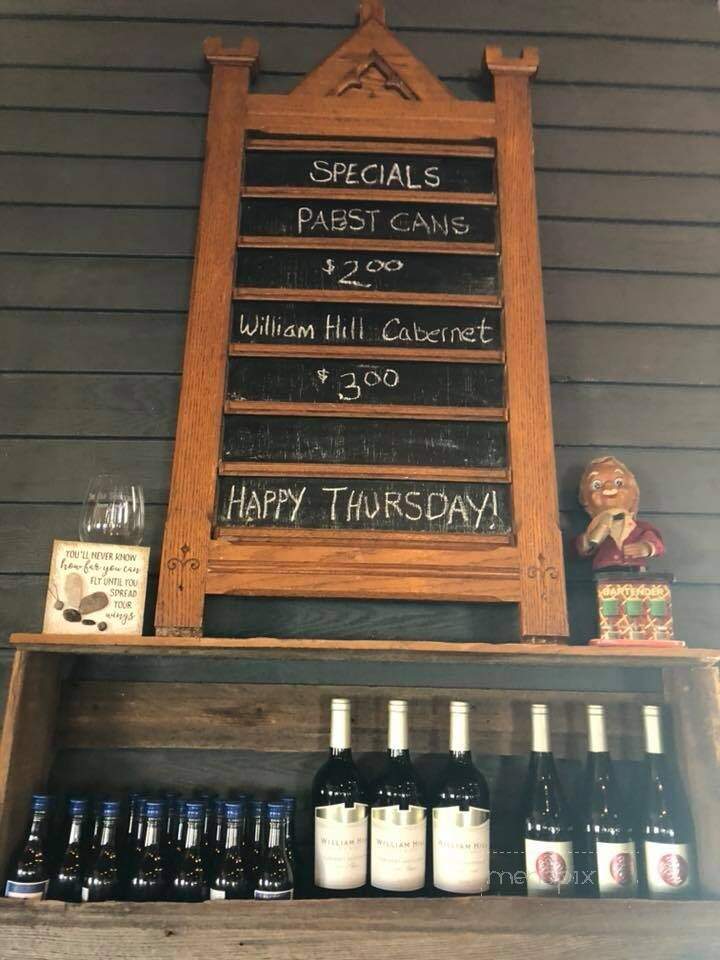 SPECIALS
PABST CANS
$2.00
William Hill Cabernet
$3.00
HAPPY THURSDAY!
YOU'LL NEVER KNOW
how far you can
FLY UNTIL YOU
SPREAD
YOUR
wings
BARTENDER
WILLIAM HILL
WILLIAM HILL
WILLIAM HILL
menupix